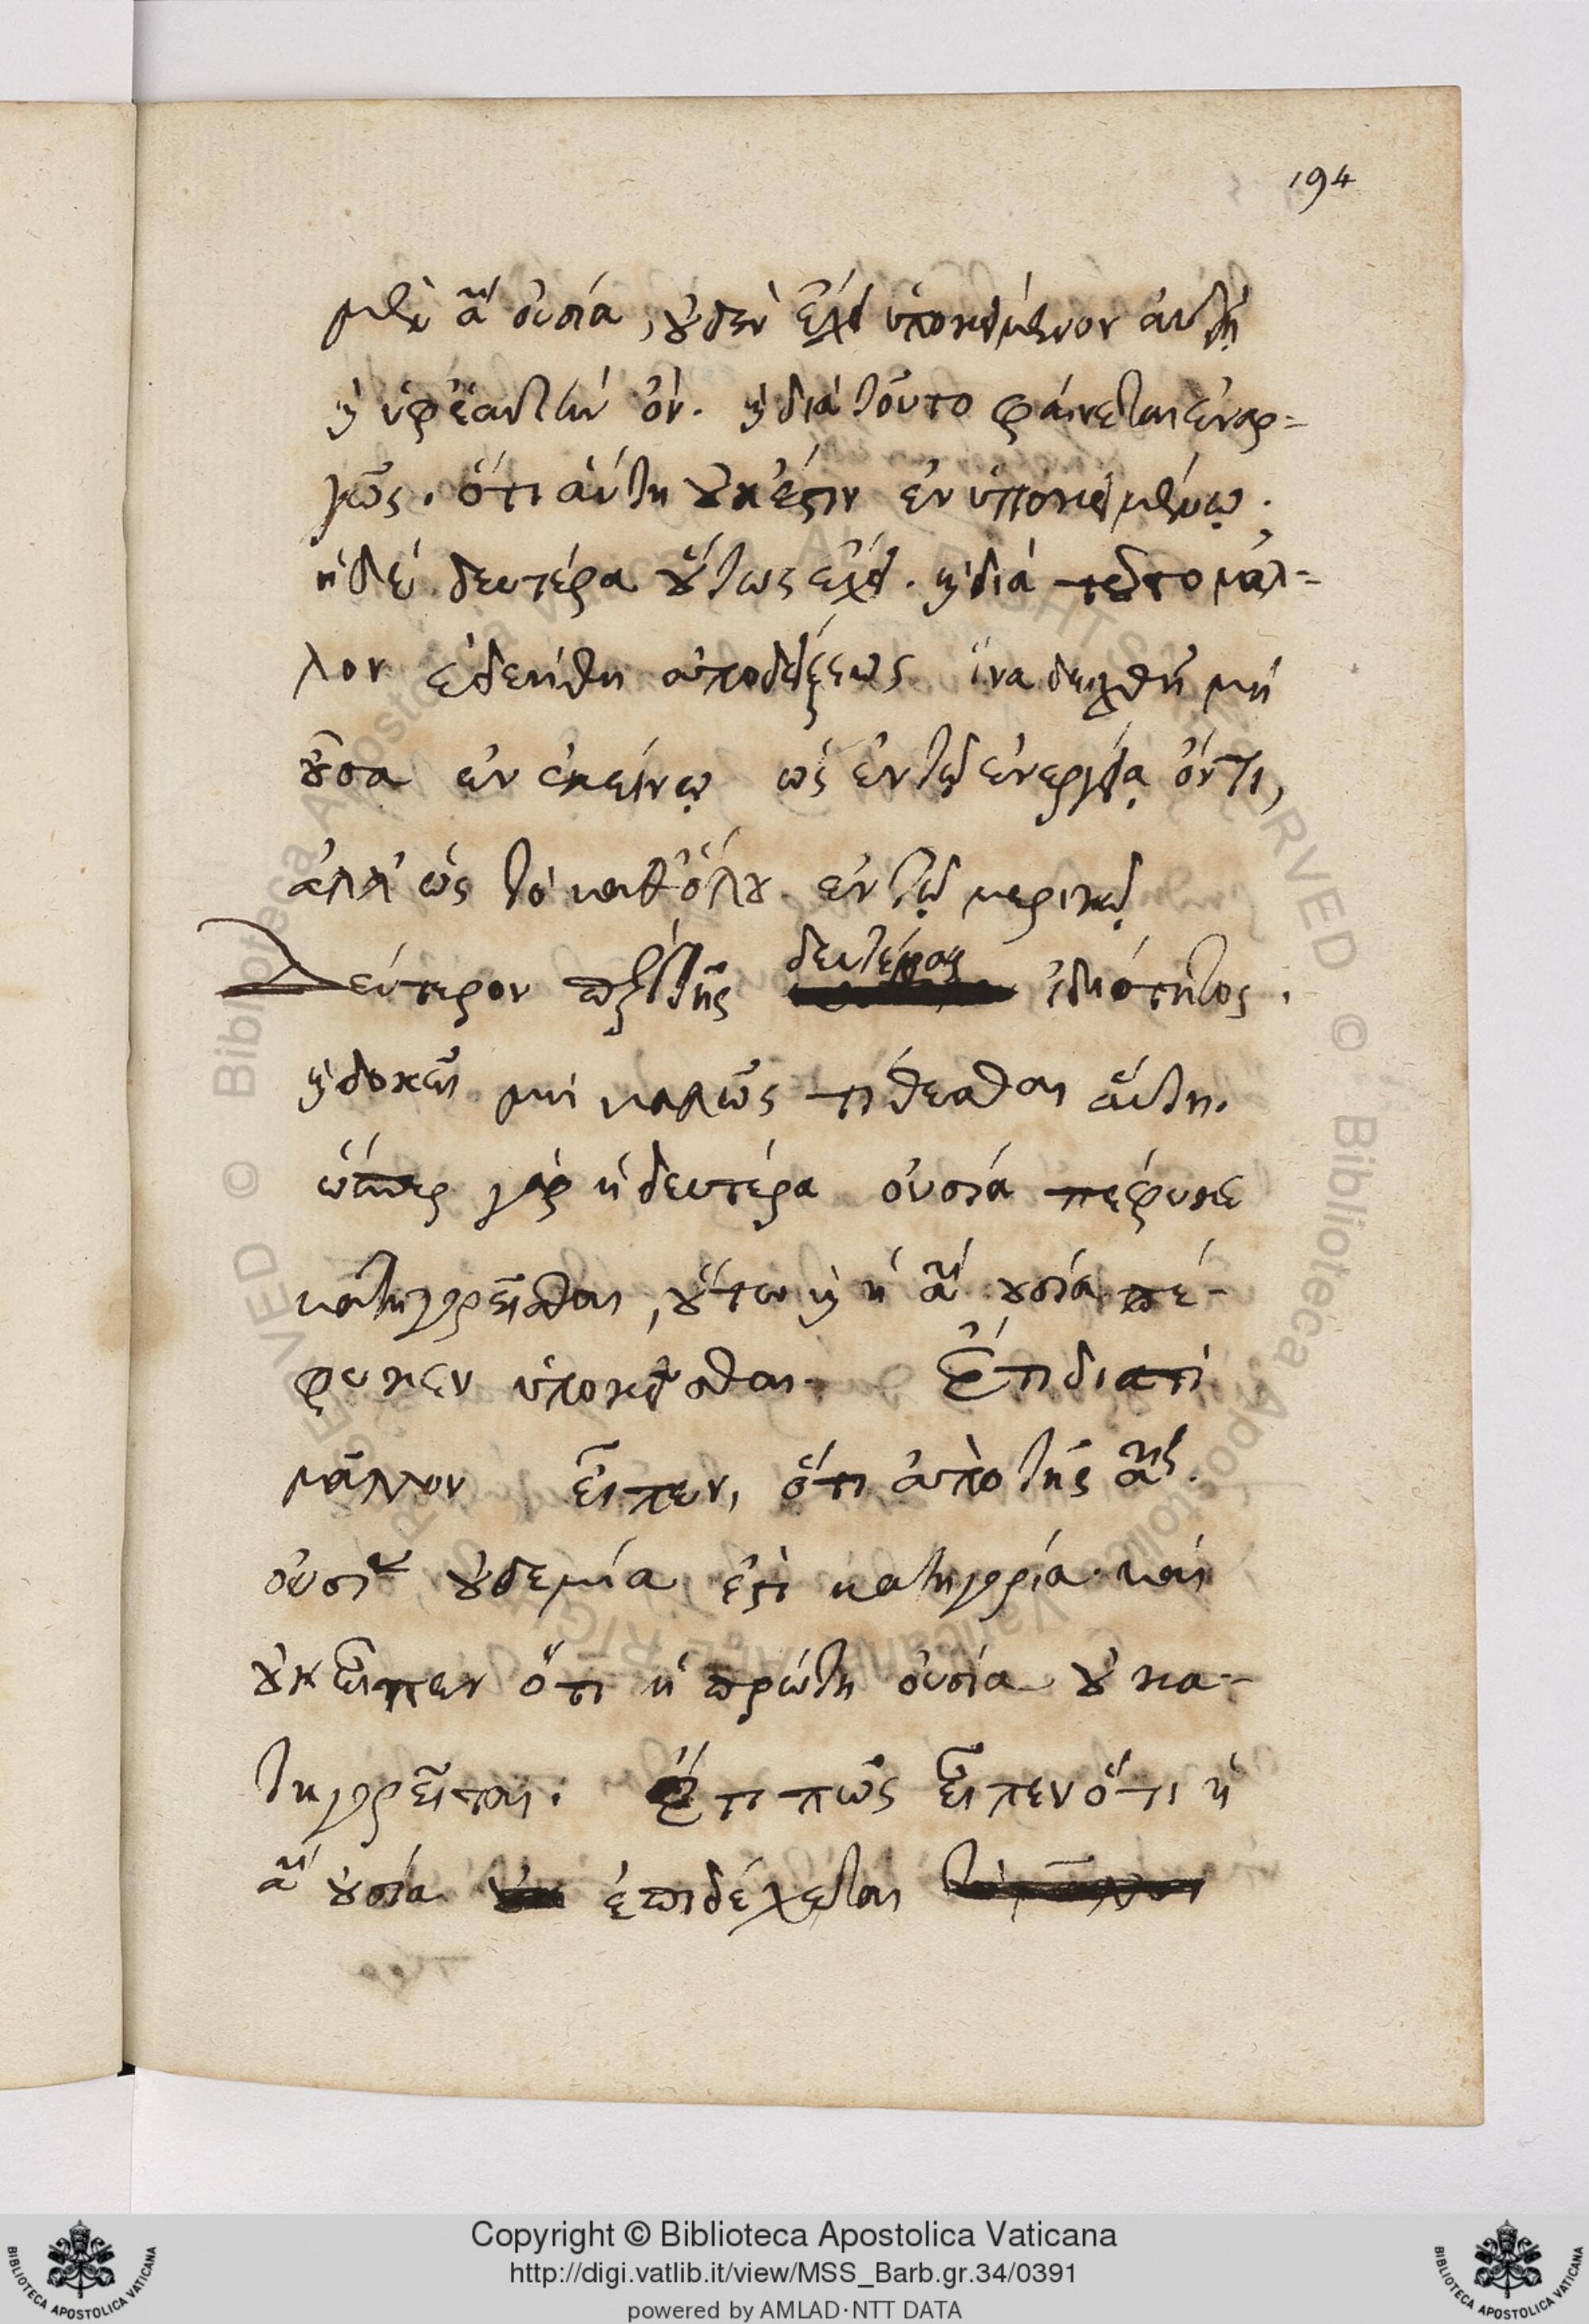 194
μὲν αʹ οὐσία, οὐδὲν ἔχει ὑποκείμενον αὐτῇ
καὶ ὑφ' ἑαυτὴν ὄν. καὶ διὰ τοῦτο φαίνεται ἐναρ-
γῶς. ὅτι αὕτη οὐκ ἔστιν ἐν ὑποκειμένῳ.
ἡ δὲ δευτέρα οὕτως ἔχει. καὶ διὰ τοῦτο μᾶλ-
λον ἐδεήθη ἀποδείξεως ἵνα δειχθῇ μὴ
οὖσα ἐν ἐκείνῳ ὡς ἐν τῷ ἐνεργείᾳ ὄντι,
ἀλλ' ὡς τὸ καθόλου ἐν τῷ μερικῷ
Δεύτερον περὶ τῆς δευτέρας ἰδιότητος.
καὶ δοκεῖ μὴ καλῶς τίθεσθαι αὕτη.
ὥσπερ γὰρ ἡ δευτέρα οὐσία πέφυκε
κατηγορεῖσθαι, οὕτω καὶ ἡ αʹ οὐσία πέ-
φυκεν ὑποκεῖσθαι. Ἔτι διατί
μᾶλλον εἶπεν, ὅτι ἀπὸ τῆς αης
οὐσίας οὐδεμία ἐστὶ κατηγορία. καὶ
οὐκ εἶπεν ὅτι ἡ πρώτη οὐσία οὐ κα-
τηγορεῖται. Ἔτι πῶς εἶπεν ὅτι ἡ
αη οὐσία ἐπιδέχεται
Copyright © Biblioteca Apostolica Vaticana
http://digi.vatlib.it/view/MSS_Barb.gr.34/0391
powered by AMLAD·NTT DATA
BIBLIOTECA APOSTOLICA VATICANA
BIBLIOTECA APOSTOLICA VATICANA